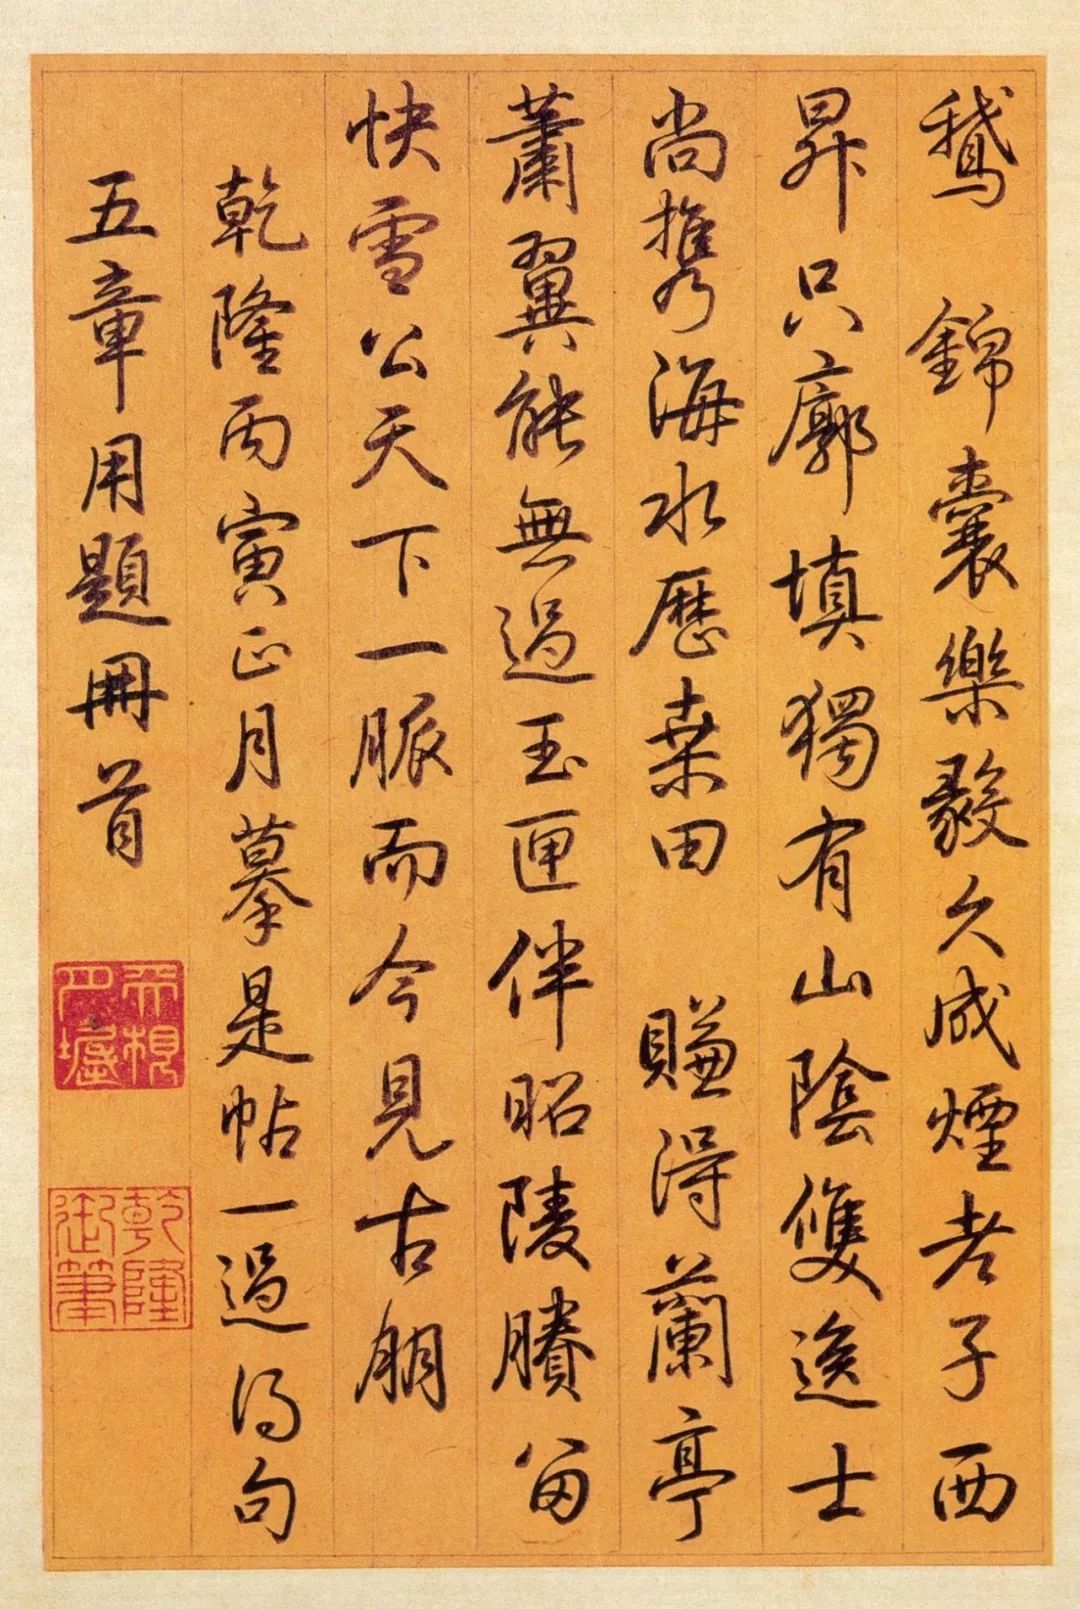 鵞 錦囊樂毅久成煙老子西
昇只廓填獨有山陰雙逸士
尚攜海水歷桑田 賺得蘭亭
蕭翼能無過玉匣伴昭陵賸留
快雪公天下一脈而今見古朋
乾隆丙寅正月摹是帖一過得句
五章用題冊首
乾隆
御筆